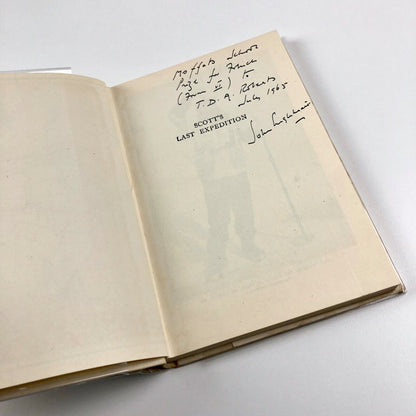 Moffats School
Prize for French
(Form VI) to
T. D. A. Roberts
July 1965
SCOTT'S
LAST EXPEDITION
John